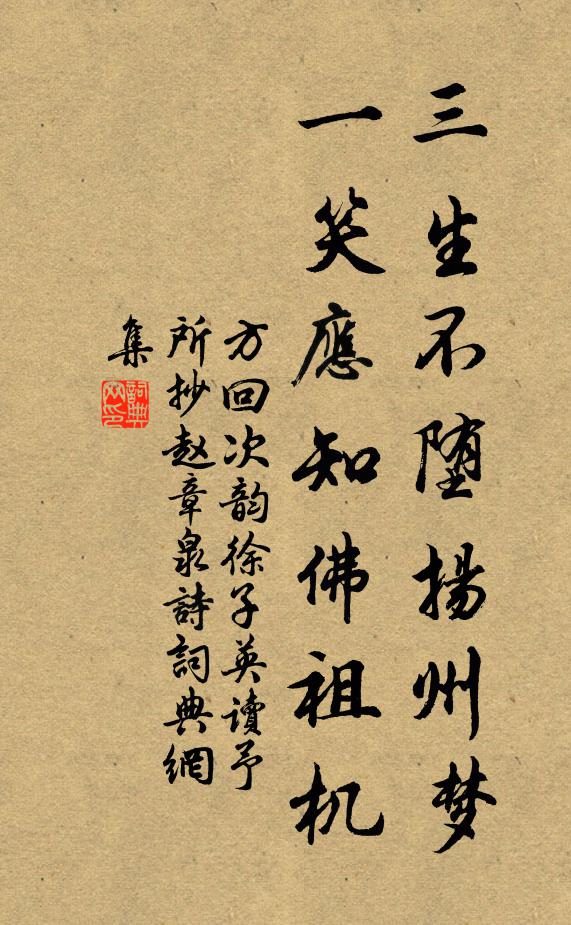 三生不堕揚州梦
一笑應知佛祖机
方回次韵徐子英讀予
所抄赵章泉詩詞典網
集
詞典网印